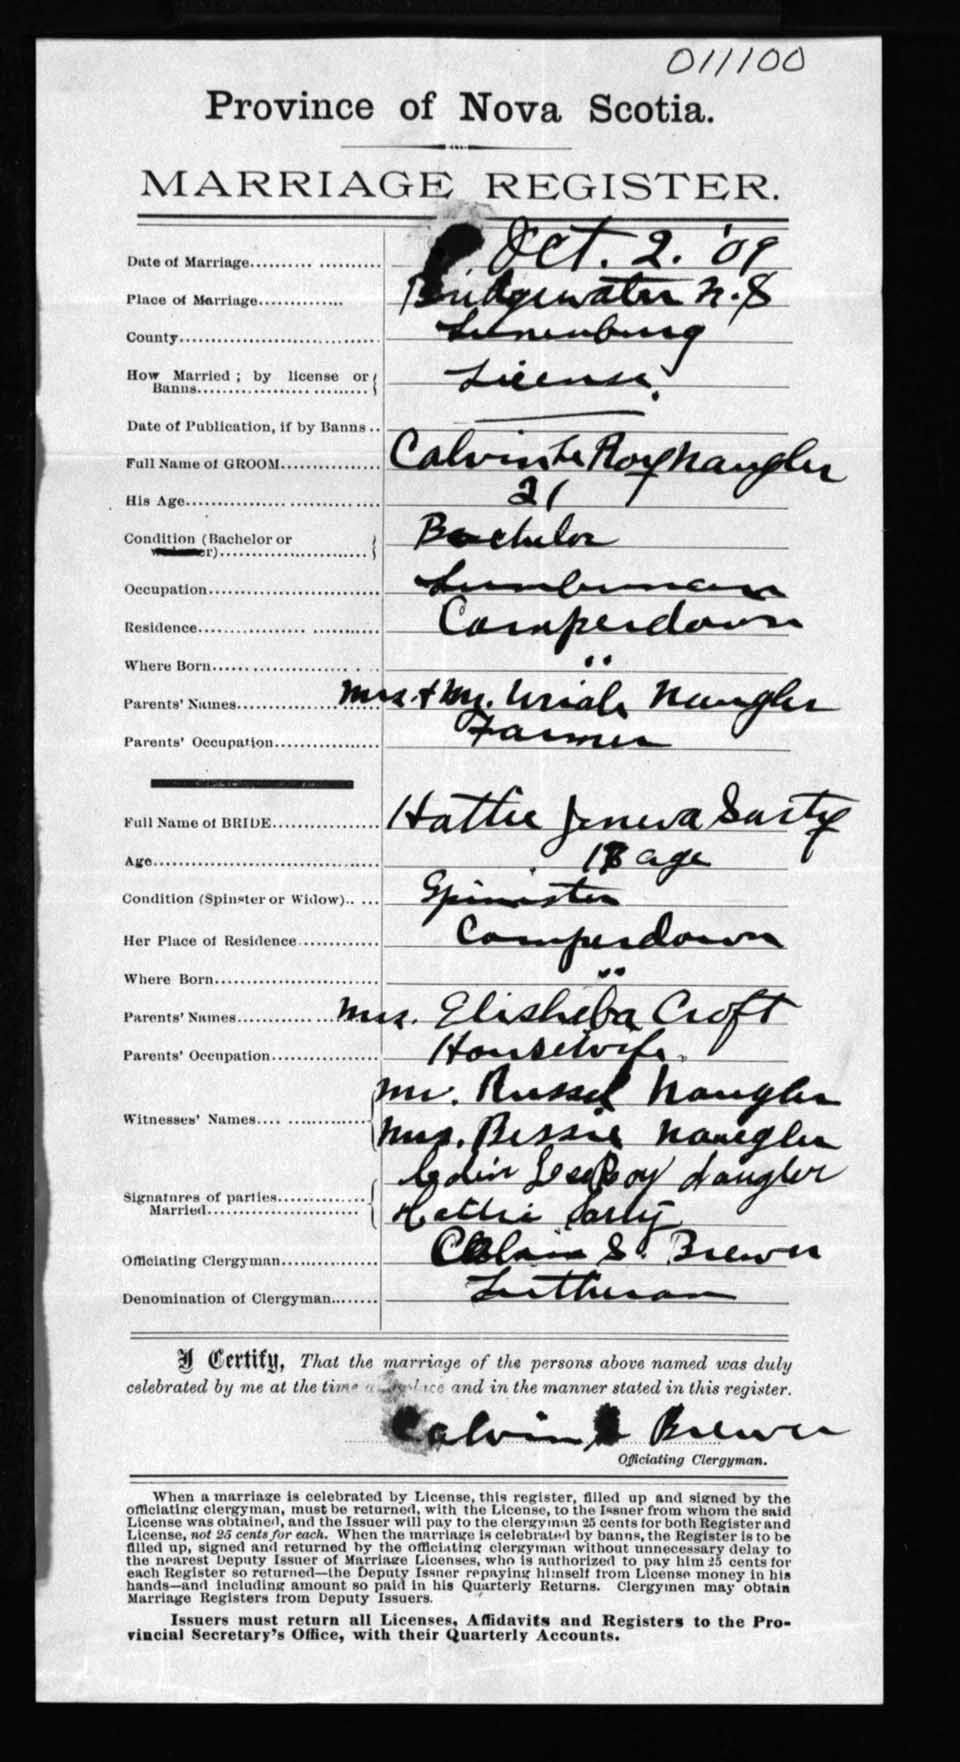 011100
Province of Nova Scotia.
MARRIAGE REGISTER.
Date of Marriage.......... .......... Oct. 2. '09
Place of Marriage............. Bridgewater N.S
County................................ Lunenburg
How Married ; by license or License.
Banns.................. .........
Date of Publication, if by Banns ..
Full Name of GROOM............... Calvin Le Roy Naugler
His Age............................. 21
Condition (Bachelor or Bachelor
r)........................
Occupation......................... Lumberman
Residence........................... Camperdown
Where Born....................... "
Parents' Names..................... Mrs. + Mr. Uriah Naugler
Parents' Occupation............... Farmer
Full Name of BRIDE............... Hattie Jeneva Sarty
Age................................... 18 age
Condition (Spinster or Widow).. ... Spinister
Her Place of Residence............ Camperdown
Where Born......................... "
Parents' Names..................... Mrs. Elisheba Croft
Parents' Occupation............... Housewife.
Mr. Russel Naugler
Witnesses' Names.... ............
Mrs. Bessie Naugler
Roy Naugler
Signatures of parties.............
Married....................... Hattie Sarty
Officiating Clergyman............... S. Brewer
Denomination of Clergyman....... Lutheran
I Certify, That the marriage of the persons above named was duly
celebrated by me at the time and in the manner stated in this register.
Calvin Brewer
Officiating Clergyman.
When a marriage is celebrated by License, this register, filled up and signed by the
officiating clergyman, must be returned, with the License, to the Issuer from whom the said
License was obtained, and the Issuer will pay to the clergyman 25 cents for both Register and
License, not 25 cents for each. When the marriage is celebrated by banns, the Register is to be
filled up, signed and returned by the officiating clergyman without unnecessary delay to
the nearest Deputy Issuer of Marriage Licenses, who is authorized to pay him 25 cents for
each Register so returned—the Deputy Issuer repaying himself from License money in his
hands—and including amount so paid in his Quarterly Returns. Clergymen may obtain
Marriage Registers from Deputy Issuers.
Issuers must return all Licenses, Affidavits and Registers to the Pro-
vincial Secretary's Office, with their Quarterly Accounts.